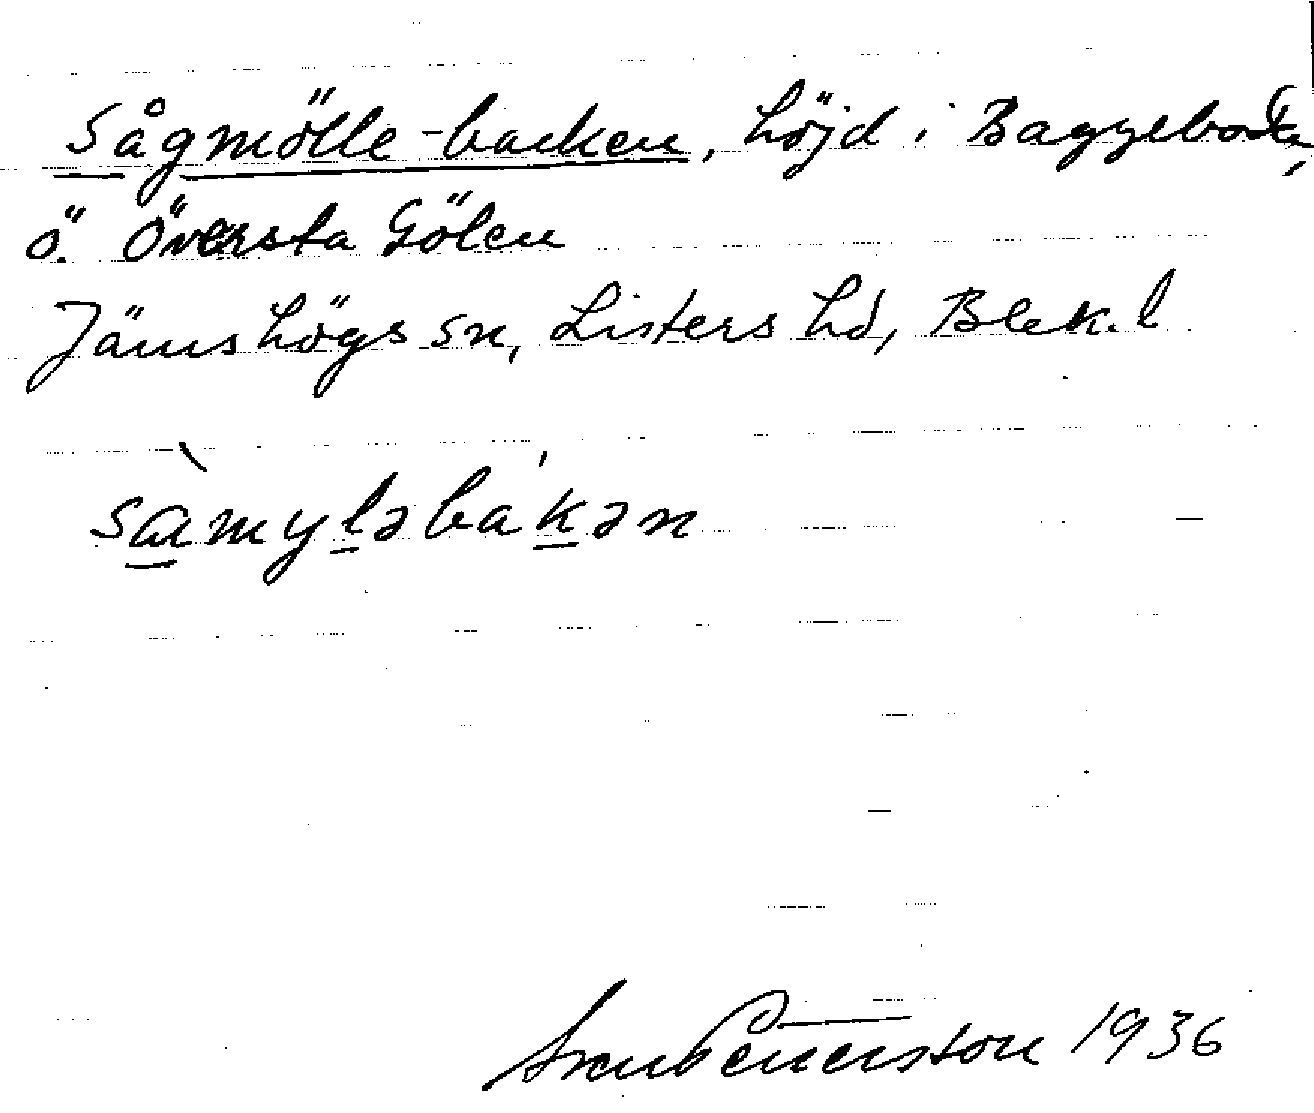 Sågmölle-backen, höjd i Baggeboda,
ö. Översta Gölen
Jämshögs sn, Listers hd, Blek. l
sàmyləbákən
Sven Benson 1936